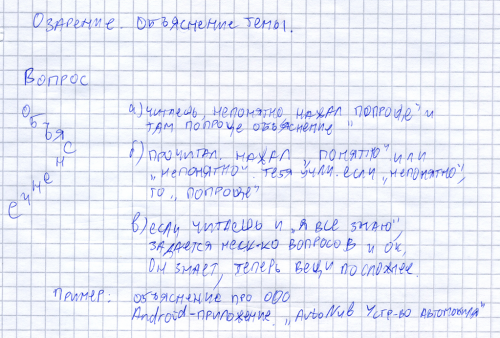 Озарение. Объяснение темы.
Вопрос
Объяснение
а) читаешь, непонятно нажал попроще" и
там попроще объяснение"
б) прочитал. нажал „понятно" или
„непонятно". тебя учили. если „непонятно",
то „попроще"
в) если читаешь и „я все знаю",
задается неск-ко вопросов и ок,
он знает, теперь вещи посложнее.
Пример: объяснение про ООО
Android-приложение. „AutoNub Устр-во автомобиля"